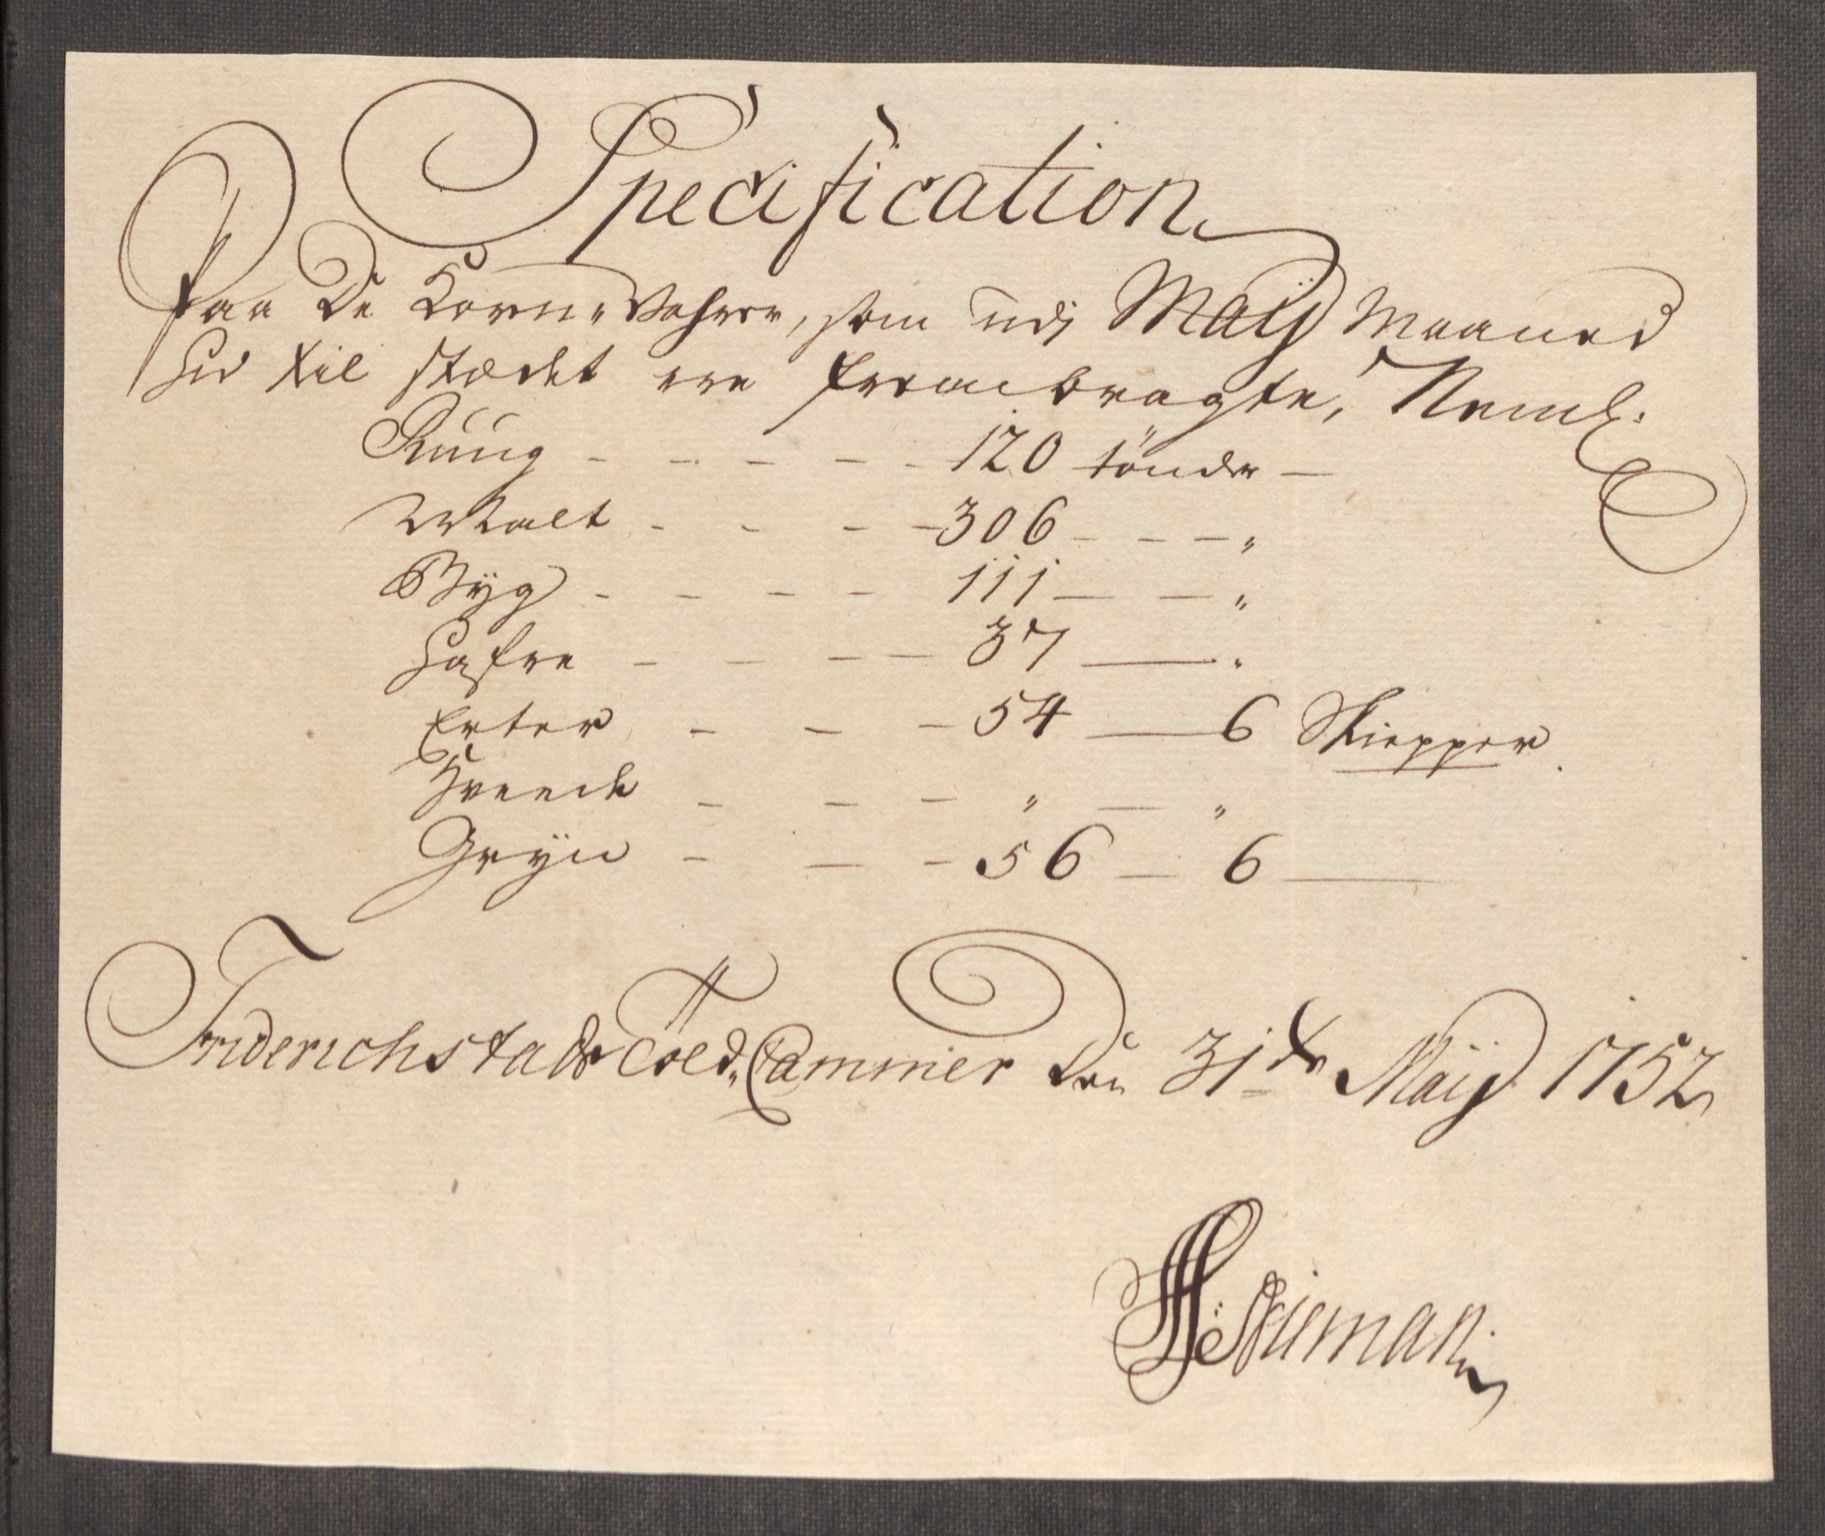 Specification
Paa De Korn-Vahrer, som udj Maij Maaned
hid til stædet ere frembragte, Neml.
Rüüg - - - - - 120 tönder -
Malt - - - - 306 - - - "
Byg - - - - 111 - - "
Hafre - - - - 37 - "
Erter - - - 54 - 6 Skiepper
Hveede - - - " - "
Gryn - - - 56 - 6 -
Friderichstads Told-Cammer Den 31te Maij 1752